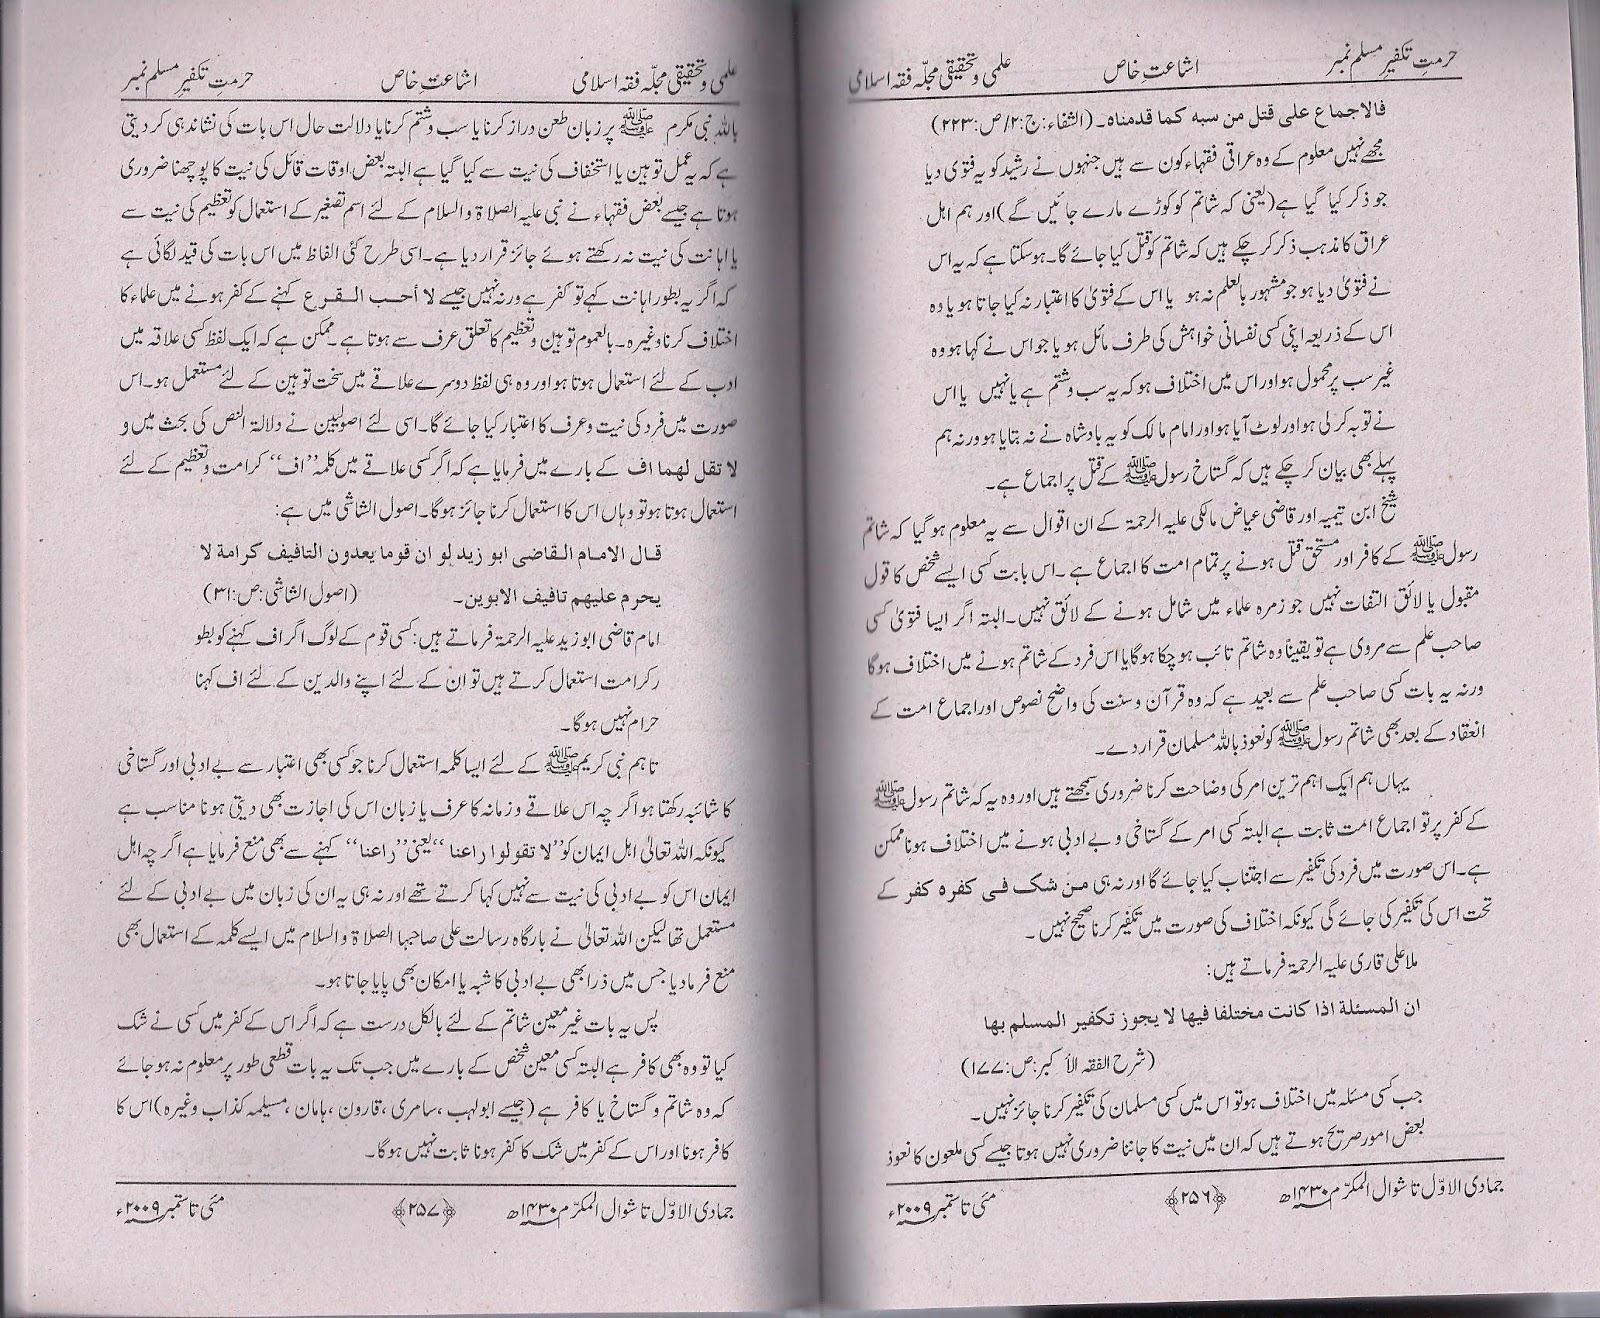 علمی و تحقیقی مجلّہ فقہ اسلامی اشاعتِ خاص حرمتِ تکفیرِ مسلم نمبر
فالاجماع علی قتل من سبه کما قدمناه۔ (الشفاء:ج:۲/ص:۲۲۳)
مجھے نہیں معلوم کے وہ عراقی فقہاء کون سے ہیں جنہوں نے رشید کو یہ فتویٰ دیا
جو ذکر کیا گیا ہے (یعنی کہ شاتم کو کوڑے مارے جائیں گے) اور ہم اہل
عراق کا مذہب ذکر کر چکے ہیں کہ شاتم کو قتل کیا جائے گا۔ ہوسکتا ہے کہ یہ اس
نے فتویٰ دیا ہو جو مشہور بالعلم نہ ہو یا اس کے فتویٰ کا اعتبار نہ کیا جاتا ہو یا وہ
اس کے ذریعہ اپنی کسی نفسانی خواہش کی طرف مائل ہو یا جو اس نے کہا ہو وہ
غیر سب پر محمول ہو اور اس میں اختلاف ہو کہ یہ سب و شتم ہے یا نہیں یا اس
نے توبہ کر لی ہو اور لوٹ آیا ہو اور امام مالک کو یہ بادشاہ نے نہ بتایا ہو ورنہ ہم
پہلے بھی بیان کر چکے ہیں کہ گستاخ رسول ﷺ کے قتل پر اجماع ہے۔
شیخ ابن تیمیہ اور قاضی عیاض مالکی علیہ الرحمۃ کے ان اقوال سے یہ معلوم ہو گیا کہ شاتم
رسول ﷺ کے کافر اور مستحق قتل ہونے پر تمام امت کا اجماع ہے۔ اس بابت کسی ایسے شخص کا قول
مقبول یا لائق التفات نہیں جو زمرہ علماء میں شامل ہونے کے لائق نہیں۔ البتہ اگر ایسا فتویٰ کسی
صاحب علم سے مروی ہے تو یقیناً وہ شاتم تائب ہو چکا ہوگا یا اس فرد کے شاتم ہونے میں اختلاف ہوگا
ورنہ یہ بات کسی صاحب علم سے بعید ہے کہ وہ قرآن و سنت کی واضح نصوص اور اجماع امت کے
انعقاد کے بعد بھی شاتم رسول ﷺ کو نعوذ باللہ مسلمان قرار دے۔
یہاں ہم ایک اہم ترین امر کی وضاحت کرنا ضروری سمجھتے ہیں اور وہ یہ کہ شاتم رسول ﷺ
کے کفر پر تو اجماع امت ثابت ہے البتہ کسی امر کے گستاخی و بے ادبی ہونے میں اختلاف ہونا ممکن
ہے۔ اس صورت میں فرد کی تکفیر سے اجتناب کیا جائے گا اور نہ ہی من شک فی کفره کفر کے
تحت اس کی تکفیر کی جائے گی کیونکہ اختلاف کی صورت میں تکفیر کرنا صحیح نہیں۔
ملا علی قاری علیہ الرحمۃ فرماتے ہیں:
ان المسئلة اذا كانت مختلفا فيها لا يجوز تكفير المسلم بها
(شرح الفقہ الأکبر:ص:۱۷۷)
جب کسی مسئلہ میں اختلاف ہو تو اس میں کسی مسلمان کی تکفیر کرنا جائز نہیں۔
بعض امور صریح ہوتے ہیں کہ ان میں نیت کا جاننا ضروری نہیں ہوتا جیسے کسی ملعون کا نعوذ
جمادی الاوّل تا شوال المکرّم ۱۴۳۰ھ ﴿۲۵۶﴾ مئی تا ستمبر ۲۰۰۹ء
علمی و تحقیقی مجلّہ فقہ اسلامی اشاعتِ خاص حرمتِ تکفیرِ مسلم نمبر
باللہ نبی مکرم ﷺ پر زبان طعن دراز کرنا یا سب و شتم کرنا یا دلالت حال اس بات کی نشاندہی کر دیتی
ہے کہ یہ عمل توہین یا استخفاف کی نیت سے کیا گیا ہے البتہ بعض اوقات قائل کی نیت کا پوچھنا ضروری
ہوتا ہے جیسے بعض فقہاء نے نبی علیہ الصلاۃ والسلام کے لئے اسم تصغیر کے استعمال کو تعظیم کی نیت سے
یا اہانت کی نیت نہ رکھتے ہوئے جائز قرار دیا ہے۔ اسی طرح کئی الفاظ میں اس بات کی قید لگائی ہے
کہ اگر یہ بطور اہانت کہے تو کفر ہے ورنہ نہیں جیسے لا أحب القرع کہنے کے کفر ہونے میں علماء کا
اختلاف کرنا وغیرہ۔ بالعموم توہین و تعظیم کا تعلق عرف سے ہوتا ہے۔ ممکن ہے کہ ایک لفظ کسی علاقہ میں
ادب کے لئے استعمال ہوتا ہو اور وہ ہی لفظ دوسرے علاقے میں سخت توہین کے لئے مستعمل ہو۔ اس
صورت میں فرد کی نیت و عرف کا اعتبار کیا جائے گا۔ اسی لئے اصولیین نے دلالۃ النص کی بحث میں و
لا تقل لهما اف کے بارے میں فرمایا ہے کہ اگر کسی علاقے میں کلمہ ’’اف‘‘ کرامت و تعظیم کے لئے
استعمال ہوتا ہو تو وہاں اس کا استعمال کرنا جائز ہوگا۔ اصول الشاشی میں ہے:
قال الامام القاضی ابو زيد لو ان قوما يعدون التافيف كرامة لا
يحرم عليهم تافيف الابوين۔ (اصول الشاشی:ص:۳۱)
امام قاضی ابو زید علیہ الرحمۃ فرماتے ہیں: کسی قوم کے لوگ اگر اف کہنے کو بطو
ر کرامت استعمال کرتے ہیں تو ان کے لئے اپنے والدین کے لئے اف کہنا
حرام نہیں ہوگا۔
تاہم نبی کریم ﷺ کے لئے ایسا کلمہ استعمال کرنا جو کسی بھی اعتبار سے بے ادبی اور گستاخی
کا شائبہ رکھتا ہو اگر چہ اس علاقے و زمانہ کا عرف یا زبان اس کی اجازت بھی دیتی ہو نا مناسب ہے
کیونکہ اللہ تعالیٰ اہل ایمان کو ’’لا تقولوا راعنا‘‘ یعنی ’’راعنا‘‘ کہنے سے بھی منع فرمایا ہے اگر چہ اہل
ایمان اس کو بے ادبی کی نیت سے نہیں کہا کرتے تھے اور نہ ہی یہ ان کی زبان میں بے ادبی کے لئے
مستعمل تھا لیکن اللہ تعالیٰ نے بارگاہ رسالت علی صاحبہا الصلاۃ والسلام میں ایسے کلمہ کے استعمال بھی
منع فرما دیا جس میں ذرا بھی بے ادبی کا شبہ یا امکان بھی پایا جاتا ہو۔
پس یہ بات غیر معین شاتم کے لئے بالکل درست ہے کہ اگر اس کے کفر میں کسی نے شک
کیا تو وہ بھی کافر ہے البتہ کسی معین شخص کے بارے میں جب تک یہ بات قطعی طور پر معلوم نہ ہو جائے
کہ وہ شاتم و گستاخ یا کافر ہے (جیسے ابولہب، سامری، قارون، ہامان، مسیلمہ کذاب وغیرہ) اس کا
کافر ہونا اور اس کے کفر میں شک کا کفر ہونا ثابت نہیں ہوگا۔
جمادی الاوّل تا شوال المکرّم ۱۴۳۰ھ ﴿۲۵۷﴾ مئی تا ستمبر ۲۰۰۹ء